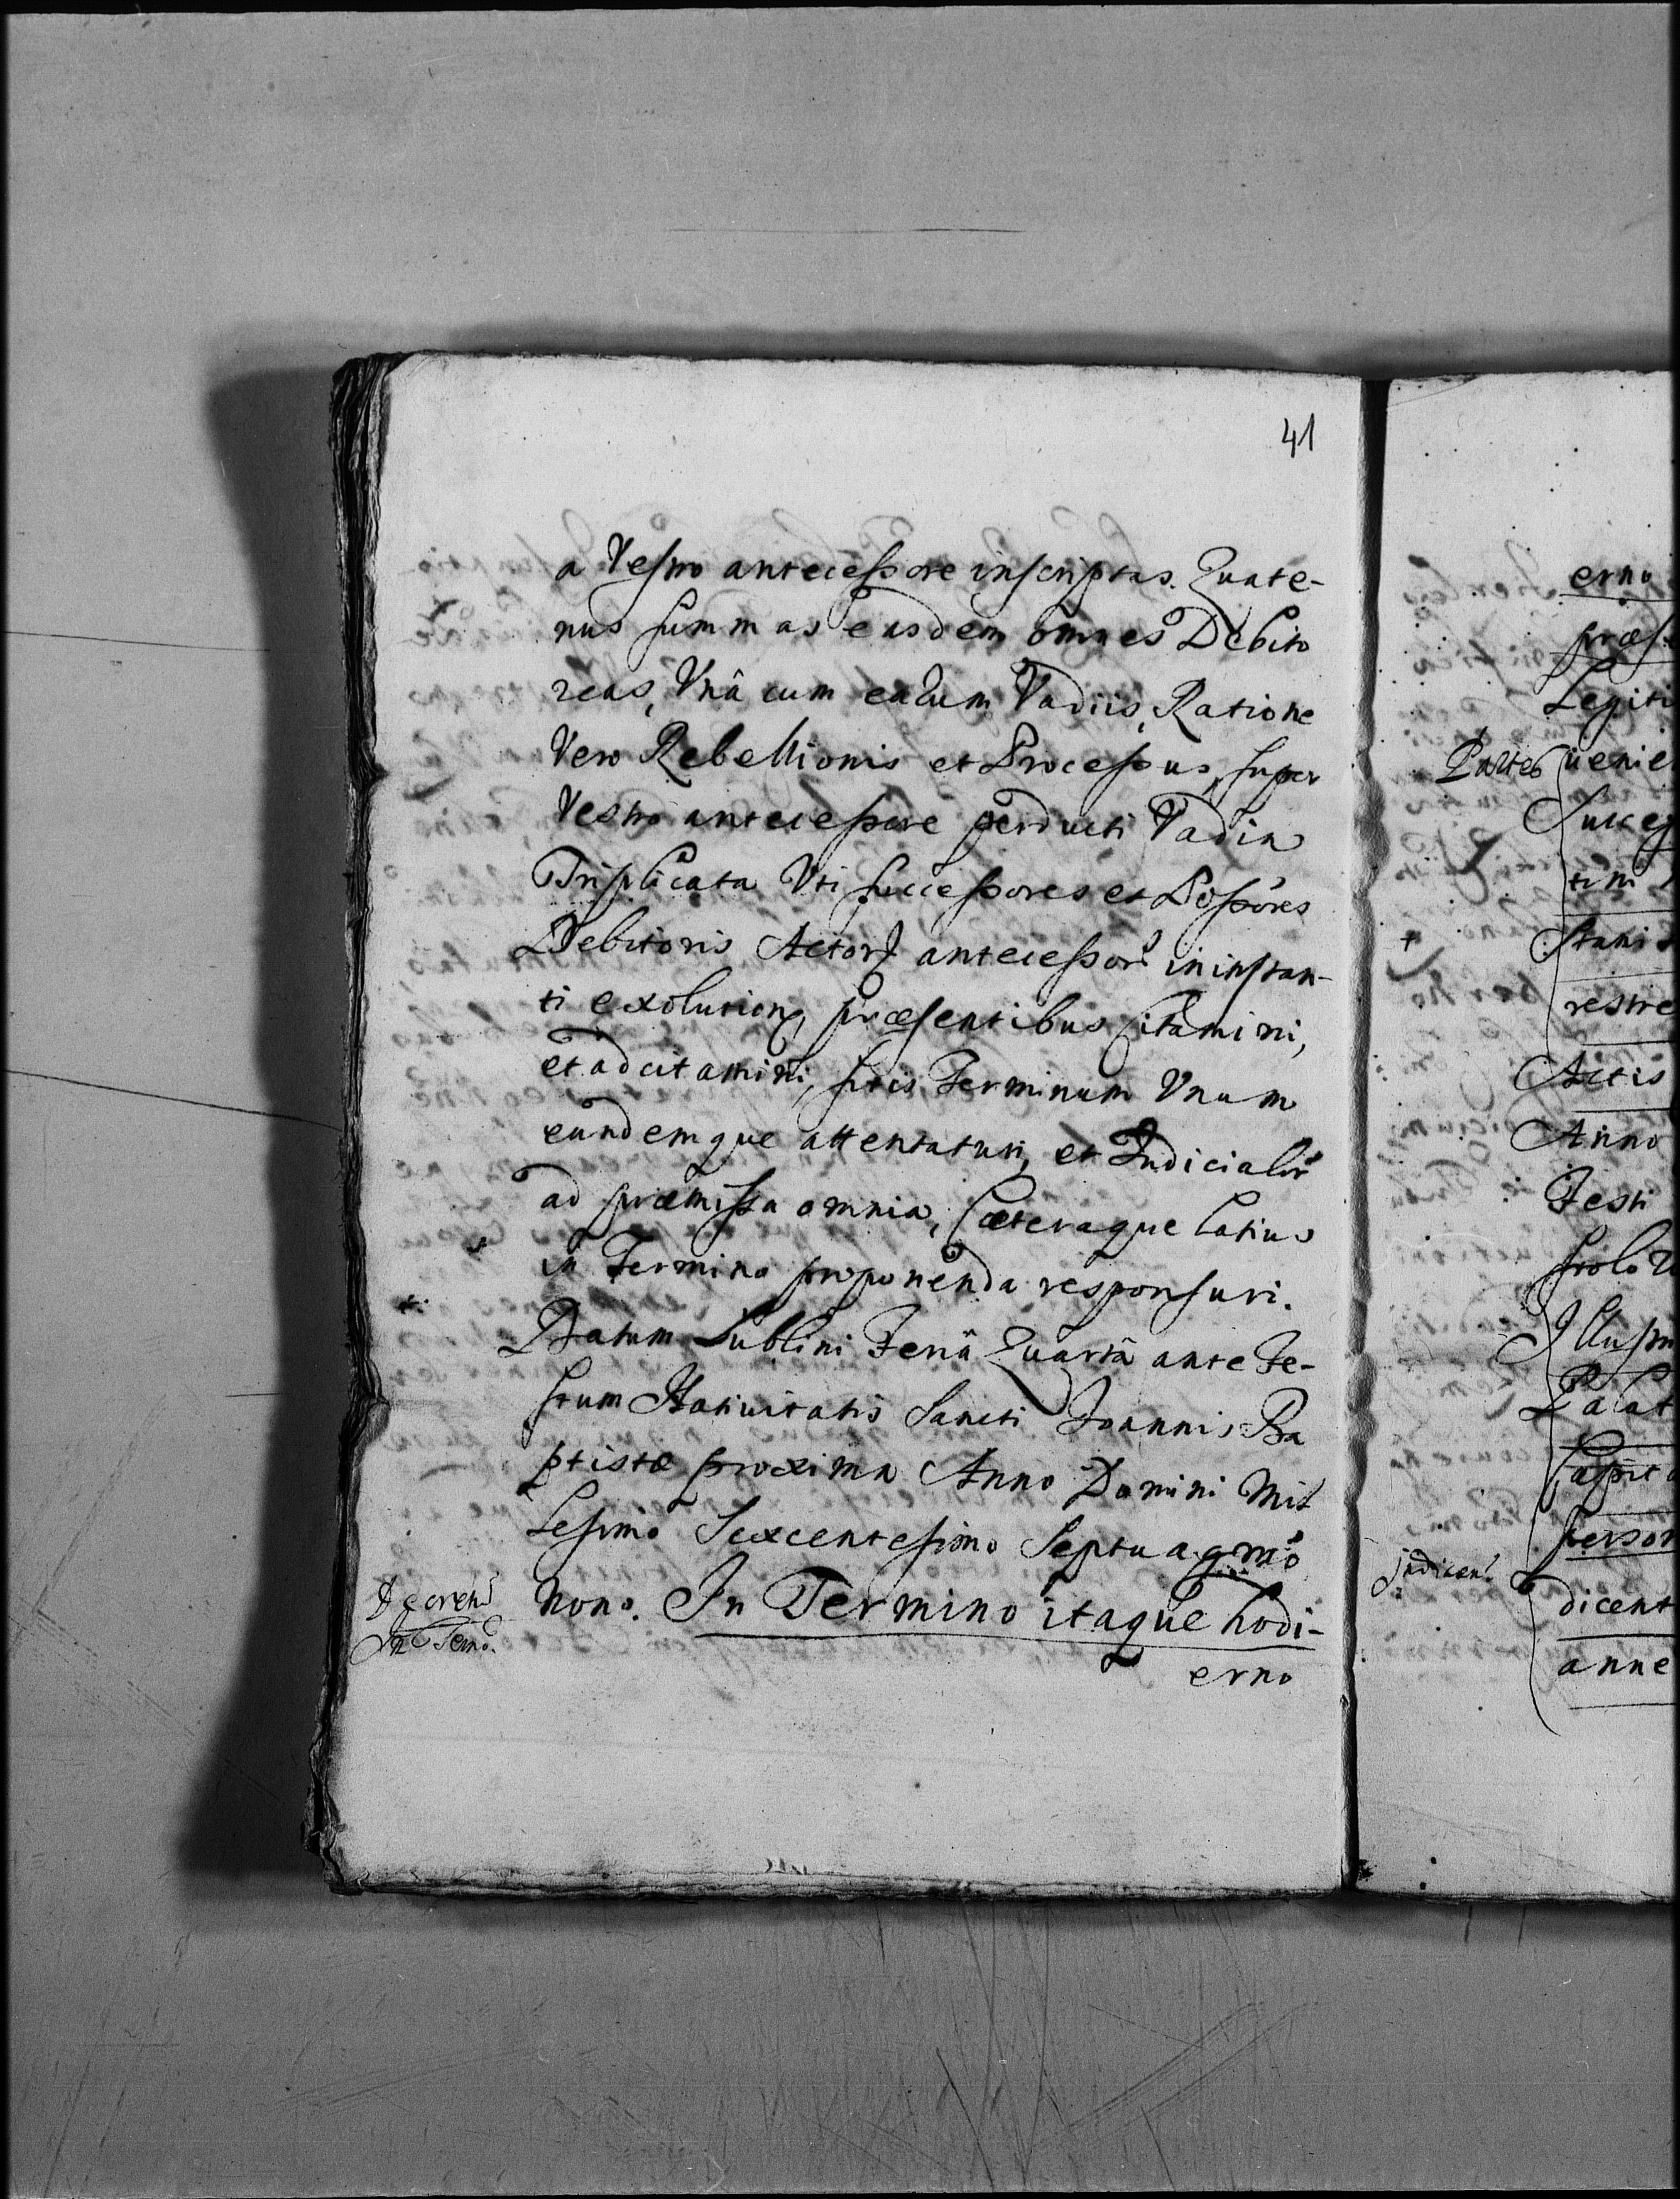 41
a Vestro antecessore inscriptas. Quate-
nus summas easdem omnes Debito
reas, Vnâ cum earum Vadiis, Ratione
Vero Rebellionis et Processus, super
Vestro antecessore perducti Vadia
Triplicata Vti successores et Possores
Debitoris Actorũ antecessorũ in instan-
ti exolutione, præsentibus citamini,
et adcitamini, sitis Terminum Vnum
eundemque attentaturi, et Iudicialr
ad præmissa omnia, cæteraque latius
in Termino proponenda responsuri.
Datum Lublini Feriâ Quartâ ante Fe-
stum Natiuitatis Sancti Joannis Ba
ptistæ proxima Anno Domini Mil
lesimo Sexcentesimo Septuagmo
nono. In Termino itaque hodi-
erno
In Termo.
erno
præs
Legiti
Partes
uenie
Succes
timi
Stanis
restre
Actis
Anno
Festi
Illustr
Palat
Capit
person
Judicent
dicent
anne